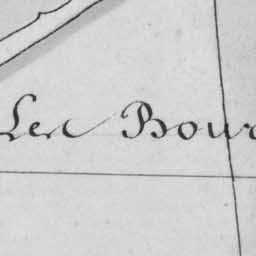 Les Bour